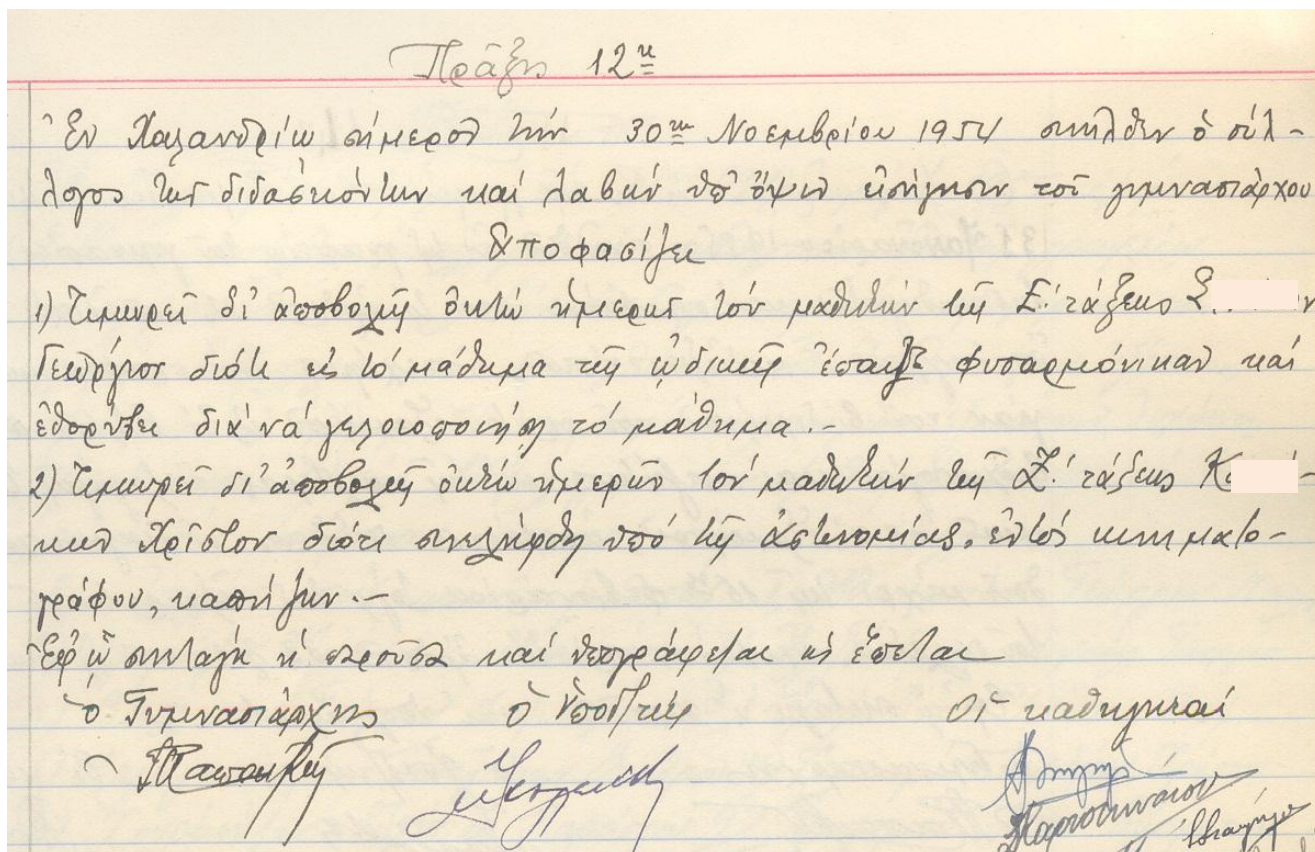 Πρᾶξις 12η
Ἐν Χαλανδρίῳ σήμερον τήν 30ην Νοεμβρίου 1954 συνῆλθεν ὁ σύλ-
λογος τῶν διδασκόντων καί λαβών ὑπ' ὄψιν εἰσήγησιν τοῦ γυμνασιάρχου
Ἀποφασίζει
1) Τιμωρεῖ δι' ἀποβολῆς ὀκτώ ἡμερῶν τόν μαθητήν τῆς Σ΄. τάξεως Σ ν
Γεώργιον διότι εἰς τό μάθημα τῆς ᾠδικῆς ἔπαιζε φυσαρμόνικαν καί
ἐθορύβει διά νά γελοιοποιήσῃ τό μάθημα.-
2) Τιμωρεῖ δι' ἀποβολῆς ὀκτώ ἡμερῶν τόν μαθητήν τῆς Ζ΄. τάξεως Κ -
καν Χρῖστον διότι συνελήφθη ὑπό τῆς ἀστυνομίας, ἐντός κινηματο-
γράφου, καπνίζων.-
Ἐφ' ᾧ συνετάγη ἡ παροῦσα καί ὑπογράφεται ὡς ἕπεται
ὁ Γυμνασιάρχης ὁ Ὑποδ/τής Οἱ καθηγηταί